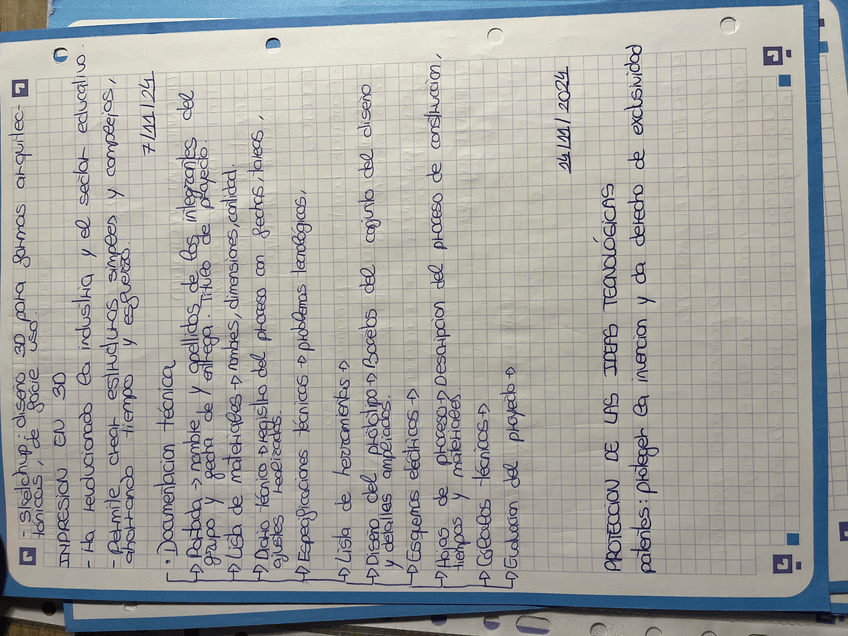 - Sketchup: diseño 3D para formas arquitec-
tónicas, de facie uso.
INPRESION EN 3D
- Ha revolucionado la industria y el sector educativo.
- Permite crear estructuras simples y complejas,
ahorrando tiempo y esfuerzo.
7/11/24
• Documentacion técnica
→ Portada → nombre y apellidos de los integrantes del
grupo y fecha de entrega. Titulo de proyecto.
→ Lista de materiales → nombres, dimensiones, cantidad.
→ Diario técnico → registro del proceso con fechas, tareas,
ajustes realizados.
→ Especificaciones técnicas → problemas tecnológicos,
→ Lista de herramientos →
→ Diseño del prototipo → Bocetos del conjunto del diseño
y detalles ampliados.
→ Esquemas eléctricos →
→ Hojas de proceso → Descripcion del proceso de construccion,
tiempos y materiales.
→ Cálculos técnicos →
→ Evaluacion del proyecto →
14/11/2024
PROTECCION DE LAS IDEAS TECNOLÓGICAS
patentes: proteger la invencion y da derecho de exclusividad